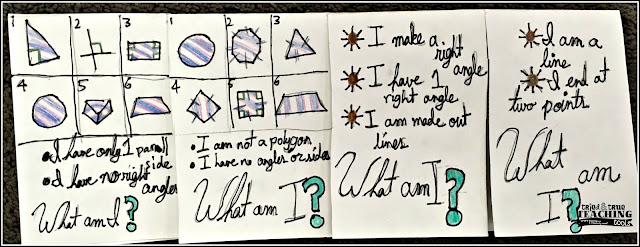 1 2 3
4 5 6
• I have only 1 parall
side
• I have no right
angles
What am I?
1 2 3
4 5 6
• I am not a polygon.
• I have no angles or sides
What am I?
I make a right
angle
I have 1
right angle
I am made out
lines
What am I?
I am a
line
I end at
two points.
What am
I?
tried & true
TEACHING
tools